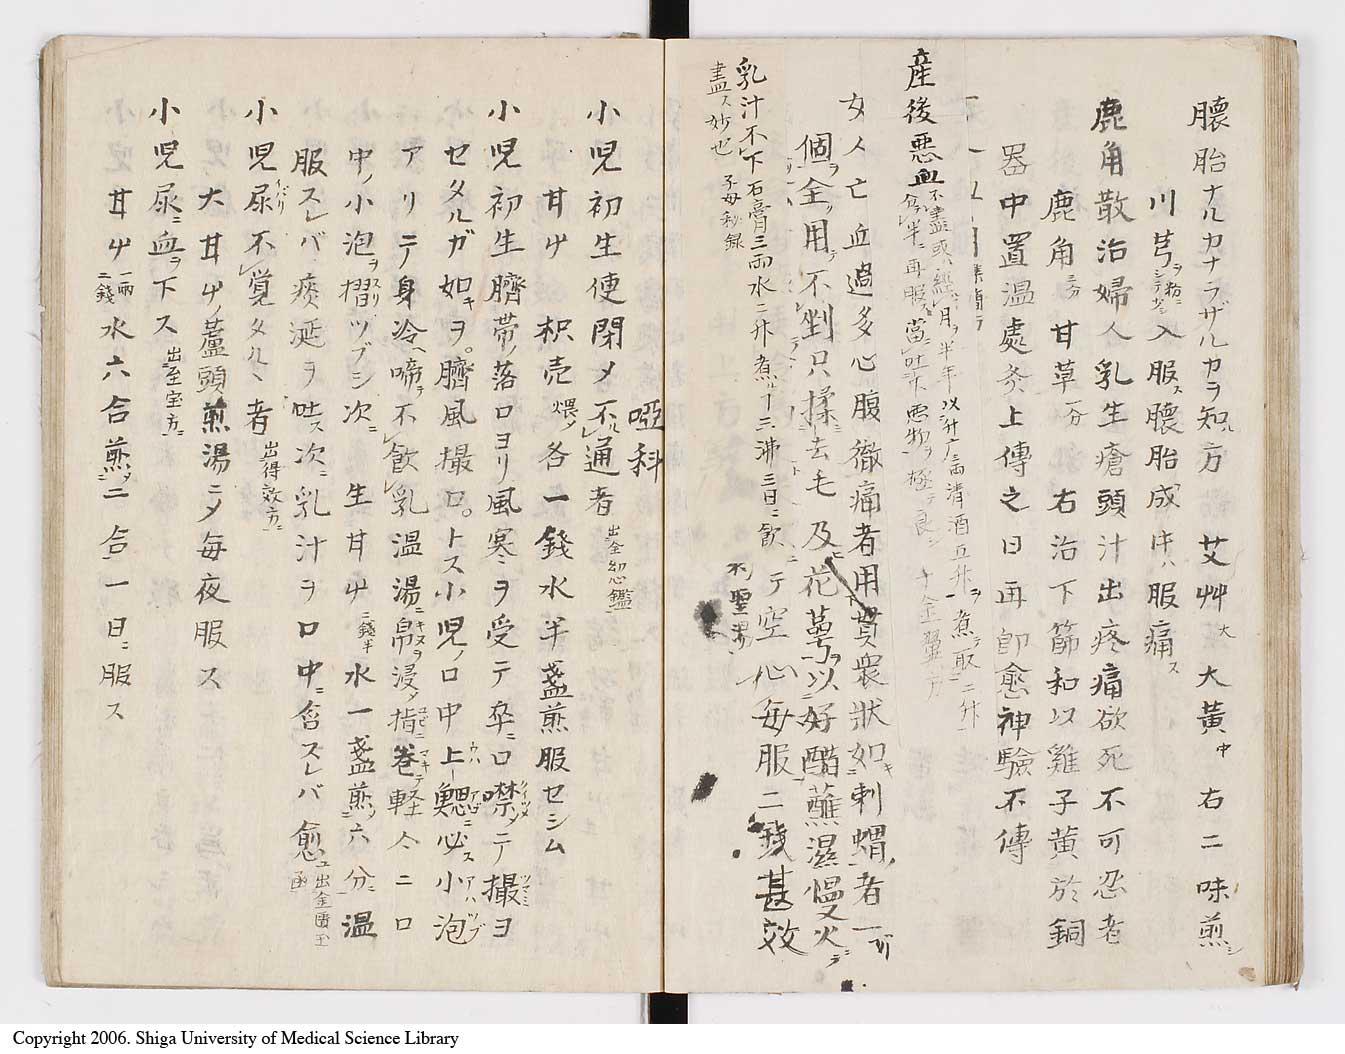 臆胎ナルカナラザルカヲ知ル方 艾艸大 大黄中 右二味煎シ
川芎ヲ粉ニシテ少シ入服ス臆胎成中ハ服痛ス
鹿角散治婦人乳生瘡頭汁出疼痛欲死不可忍者
鹿角三分 甘草一分 右治下篩和以雞子黄於銅
器中置温處炙上傅之日再即愈神驗不傳
産後悪血不盡或ハ經月ヲ半年以升广二両清酒五升ヲ煮テ取二升
分半ニ再服ス當吐下悪物ヲ極テ良シ 千金翼方
女人亡血過多心腹徹痛者用貫衆状如キ刺蝟ノ者一
個ヲ全ク用テ不剉只揉去毛及花萼ヲ以好醋蘸湿慢火ニテ
テ空心毎服二錢甚效
乳汁不下石膏三両水二升煮ルヿ三沸三日ニ飲
盡ス妙也 子母秘録
啞科
小児初生便閉メ不通者 出全幼心鑑
甘艸 枳売煨メ各一錢水半盞煎服セシム
小児初生臍帯ノ落口ヨリ風寒ヲ受テ卒ニ口噤メテ撮ヨ
セタルガ如キヲ臍風撮口トス小児ノ口中上ノ鰓ニ必ス小泡
アリテ身冷ヘ啼テ不飲乳温湯ニ帛ヲ浸メ指ニ巻テ軽々ニ口
中ノ小泡ヲ摺ツブシ次ニ 生甘艸二錢半 水一盞煎ノ六分ニ温
服スレバ痰涎ヲ吐ス次ニ乳汁ヲ口中ニ含スレバ愈ユ 出金匱玉函
小児尿不覚タルヽ者 出得效方ニ
大甘艸ノ蘆頭煎湯ニメ毎夜服ス
小児尿ニ血ヲ下ス 出至宝方ニ
甘艸一両二錢 水六合煎メ二合ニ一日ニ服ス
Copyright 2006. Shiga University of Medical Science Library